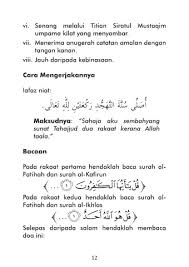 vi. Senang melalui Titian Siratul Mustaqim
umpama kilat yang menyambar.
vii. Menerima anugerah catatan amalan dengan
tangan kanan.
viii. Jauh daripada kebinasaan.
Cara Mengerjakannya
lafaz niat:
أُصَلِّى سُنَّةَ التَّهَجُّدِ رَكْعَتَيْنِ لِلّٰهِ تَعَالَى.
Maksudnya: "Sahaja aku sembahyang
sunat Tahajjud dua rakaat kerana Allah
taala."
Bacaan
Pada rakaat pertama hendaklah baca surah al-
Fatihah dan surah al-Kafirun
﴿قُلْ يَٰٓأَيُّهَا ٱلْكَٰفِرُونَ ١﴾...
Pada rakaat kedua hendaklah baca surah al-
Fatihah dan surah al-Ikhlas
﴿قُلْ هُوَ ٱللَّهُ أَحَدٌ ١﴾...
Selepas daripada salam hendaklah membaca
doa ini:
12